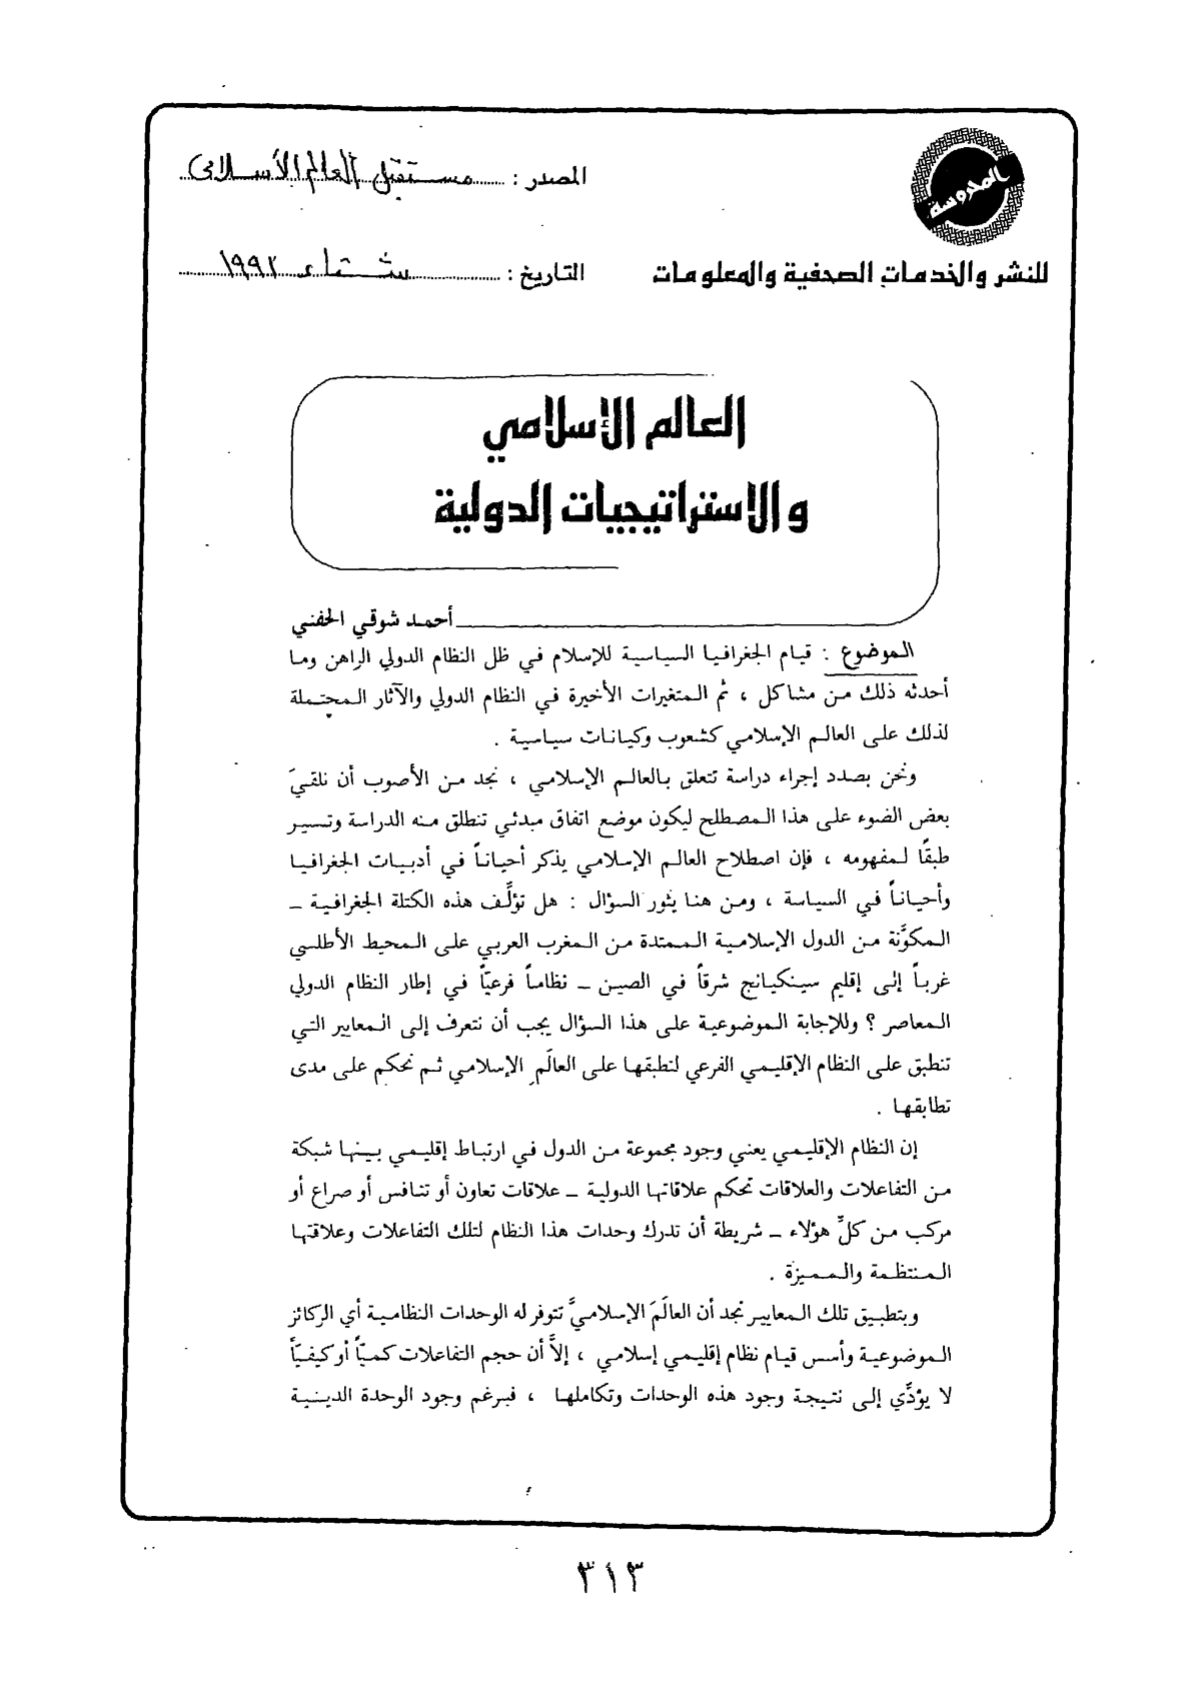 المحروسة
للنشر والخدمات الصحفية والمعلومات
المصدر : مستقبل العالم الأسلامى
التاريخ : شتاء ١٩٩٢
العالم الإسلامي
والاستراتيجيات الدولية
أحمد شوقي الحفني
الموضوع : قيام الجغرافيا السياسية للإسلام في ظل النظام الدولي الراهن وما
أحدثه ذلك من مشاكل ، ثم المتغيرات الأخيرة في النظام الدولي والآثار المحتملة
لذلك على العالم الإسلامي كشعوب وكيانات سياسية .
ونحن بصدد إجراء دراسة تتعلق بالعالم الإسلامي ، نجد من الأصوب أن نلقيَ
بعض الضوء على هذا المصطلح ليكون موضع اتفاق مبدئي تنطلق منه الدراسة وتسير
طبقًا لمفهومه ، فإن اصطلاح العالم الإسلامي يذكر أحياناً في أدبيات الجغرافيا
وأحياناً في السياسة ، ومن هنا يثور السؤال : هل تؤلِّف هذه الكتلة الجغرافية ــ
المكوَّنة من الدول الإسلامية الممتدة من المغرب العربي على المحيط الأطلسي
غرباً إلى إقليم سينكيانج شرقاً في الصين ــ نظاماً فرعيّاً في إطار النظام الدولي
المعاصر ؟ وللإجابة الموضوعية على هذا السؤال يجب أن نتعرف إلى المعايير التي
تنطبق على النظام الإقليمي الفرعي لنطبقها على العالَم الإسلامي ثم نحكم على مدى
تطابقها .
إن النظام الإقليمي يعني وجود مجموعة من الدول في ارتباط إقليمي بينها شبكة
من التفاعلات والعلاقات تحكم علاقاتها الدولية ــ علاقات تعاون أو تنافس أو صراع أو
مركب من كلِّ هؤلاء ــ شريطة أن تدرك وحدات هذا النظام لتلك التفاعلات وعلاقتها
المنتظمة والمميزة .
وبتطبيق تلك المعايير نجد أن العالَمَ الإسلاميَّ تتوفر له الوحدات النظامية أي الركائز
الموضوعية وأسس قيام نظام إقليمي إسلامي ، إلاَّ أن حجم التفاعلات كميّاً أو كيفيّاً
لا يؤدِّي إلى نتيجة وجود هذه الوحدات وتكاملها ، فبرغم وجود الوحدة الدينية
٣١٣